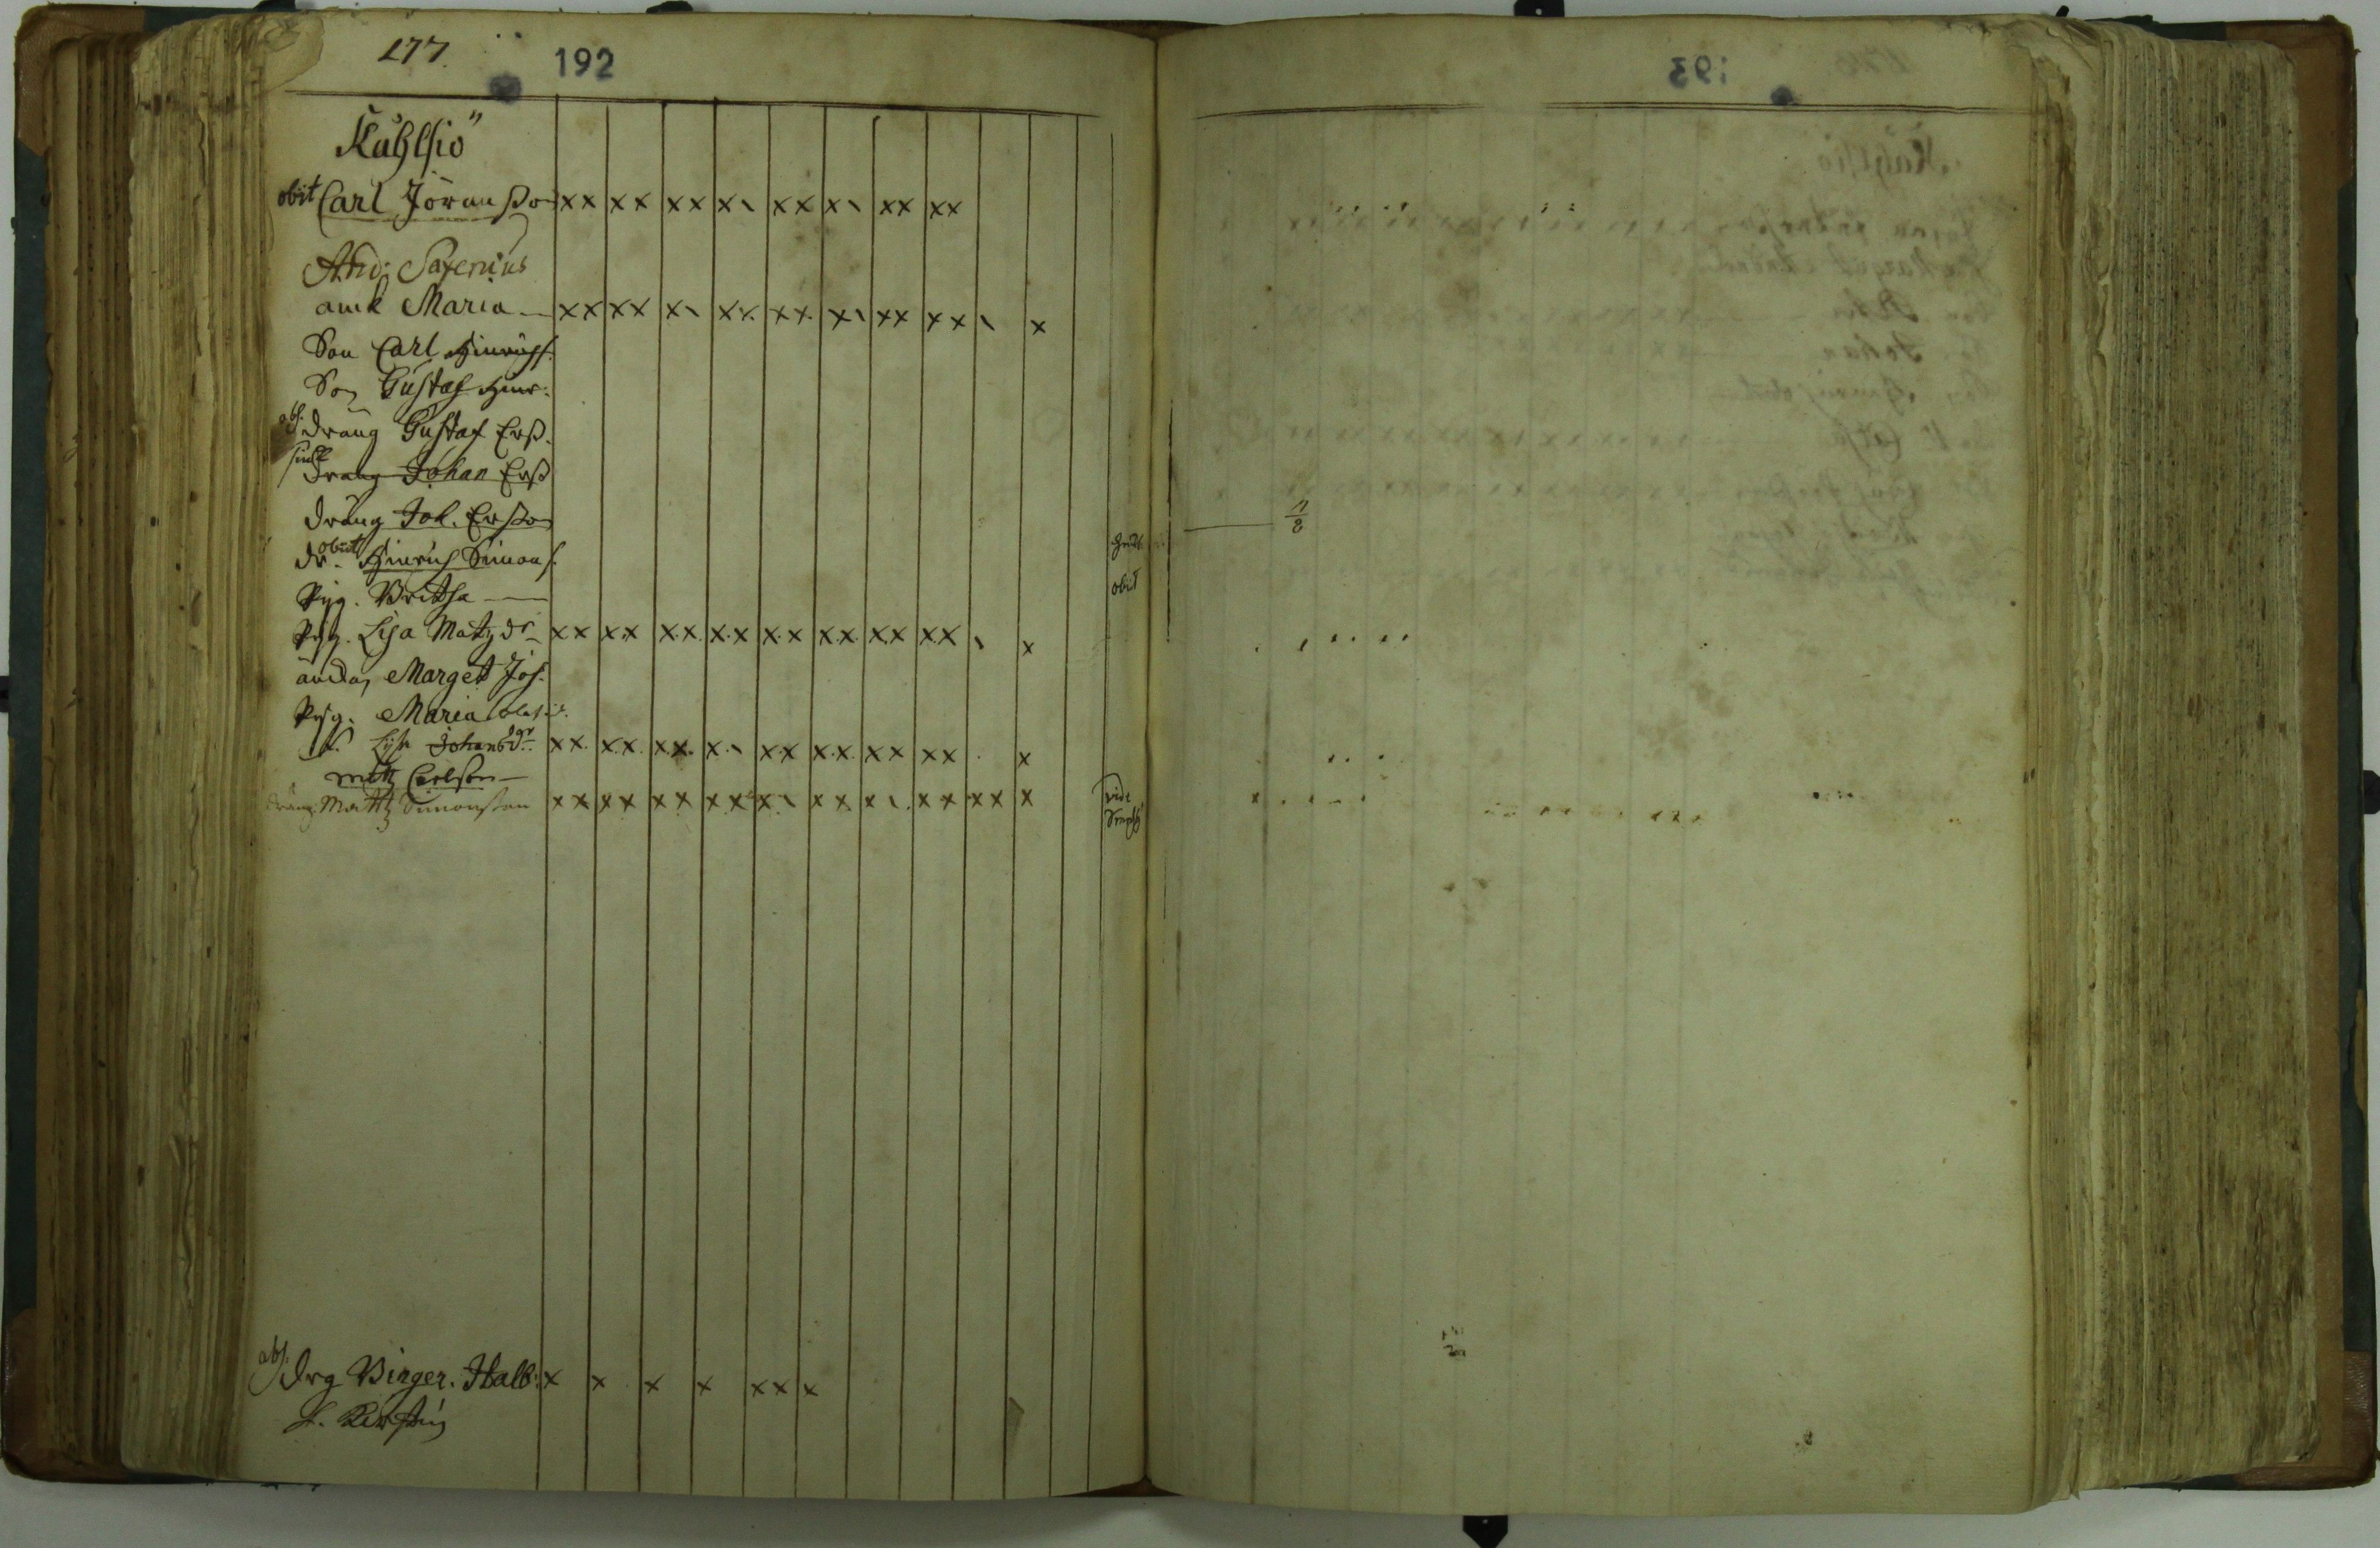 177.
192
Kuhlsiö
obiit Carl Jöranßon xx xx xx x\ xx x\ xx xx
And: Saxenius
amk Maria — xx xx x\ xx. xx. x\ xx xx \ x
Son Carl Hinrichs.
Son Gustaf Hinr:
abs. dräng Gustaf Erß.
dräng Johan Erß
dräng Joh. Erßon
dr. obiit Hinrich Simons.
Pig. Britha — obiit
Pig. Lisa Matzdr xx xx xx. xx xx xx. xx xx \ x
Marget Jos.
Pig. Maria
Lisa Johansdr xx. xx. xx. x\ xx xx. xx xx . x
matz Carlson —
dräng. Matth Simonsson xx xx xx xx x\ xx x\. xx xx x vide
abs. drg Birger. Halb: x x x x xx x
Kirstin